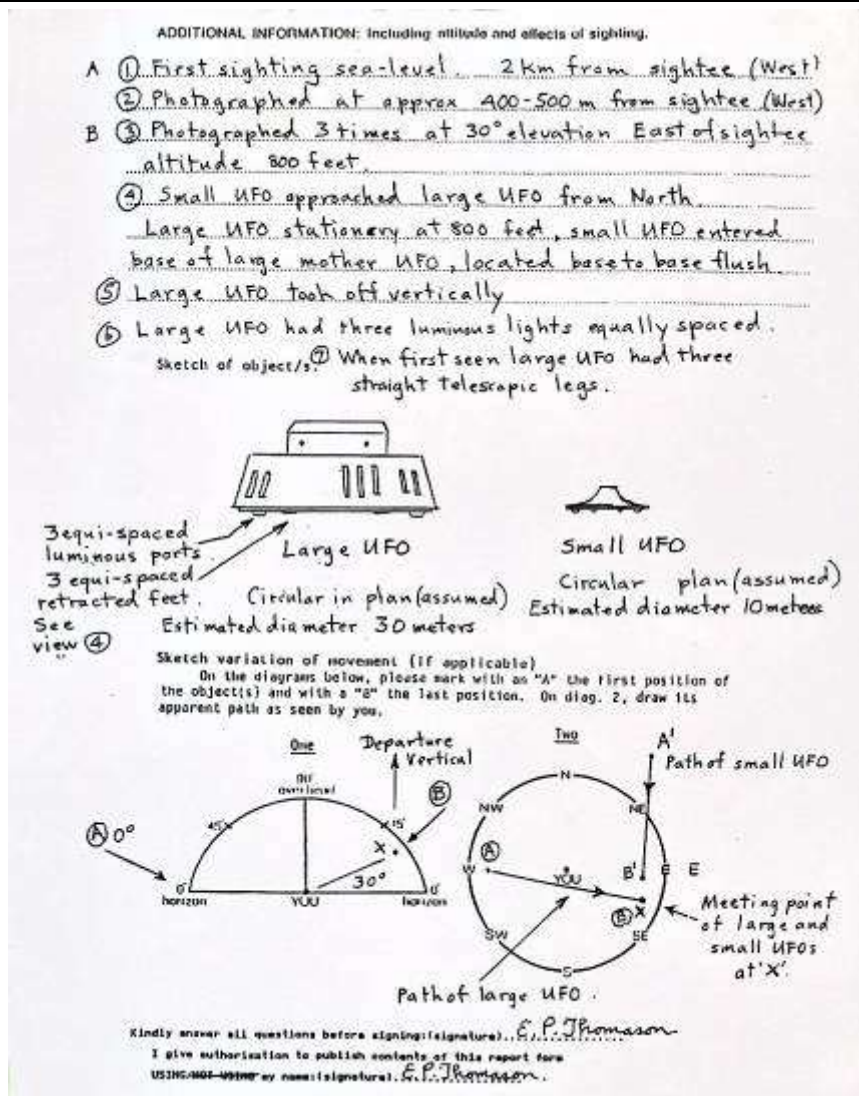 ADDITIONAL INFORMATION: Including altitude and effects of sighting.
A ① First sighting sea-level. 2 km from sightee (West)
② Photographed at approx 400-500 m from sightee (West)
B ③ Photographed 3 times at 30° elevation East of sightee
altitude 800 feet.
④ Small UFO approached large UFO from North.
Large UFO stationery at 800 feet, small UFO entered
base of large mother UFO, located base to base flush
⑤ Large UFO took off vertically
⑥ Large UFO had three luminous lights equally spaced.
Sketch of object/s. ⑦ When first seen large UFO had three
straight telescopic legs.
3 equi-spaced
luminous ports.
3 equi-spaced
retracted feet.
See
view ④
Large UFO
Circular in plan (assumed)
Estimated diameter 30 meters
Small UFO
Circular plan (assumed)
Estimated diameter 10 meters
Sketch variation of movement (if applicable)
On the diagrams below, please mark with an "A" the first position of
the object(s) and with a "B" the last position. On diag. 2, draw its
apparent path as seen by you.
One
Departure
Vertical
overhead
45°
45°
Ⓑ
Ⓐ 0°
X
30°
0°
horizon
YOU
0°
horizon
Two
A'
Path of small UFO
N
NW
NE
Ⓐ
W
YOU
B'
E
E
Ⓑ X
SW
SE
S
Meeting point
of large and
small UFOs
at 'X'.
Path of large UFO.
Kindly answer all questions before signing:(signature).. E.P. Thomason
I give authorisation to publish contents of this report form
USING/NOT USING my name:(signature). E.P. Thomason.